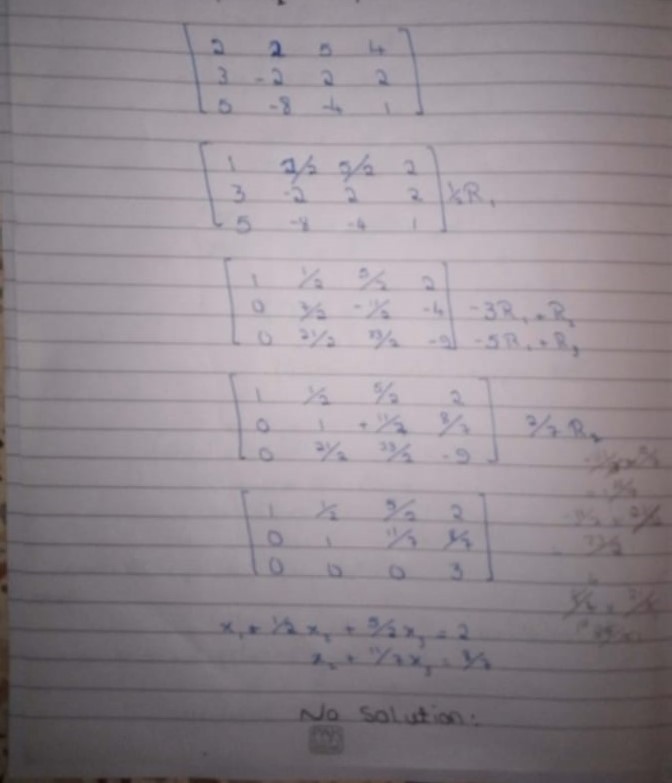 2 2 5 4
3 -2 2 2
5 -8 -4 1
1 1/2 5/2 2
3 -2 2 2 1/2 R₁
5 -8 -4 1
1 1/2 5/2 2
0 7/2 -11/2 -4 -3R₁ + R₂
0 21/2 33/2 -9 -5R₁ + R₃
1 1/2 5/2 2
0 1 + 11/2 8/7 2/7 R₂
0 21/2 33/2 -9
1 1/2 5/2 2
0 1 11/7 8/7
0 0 0 3
x₁ + 1/2 x₂ + 5/2 x₃ = 2
x₂ + 11/7 x₃ = 8/7
No Solution: